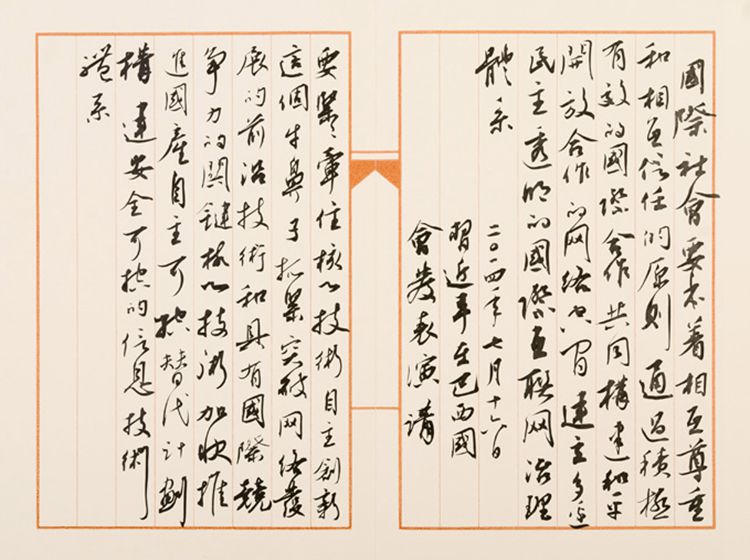 國際社會要本着相互尊重
和相互信任的原则 通過積極
有效的國際合作 共同構建和平
開放合作的网络空间 建立多边
民主透明的國際互联网治理
體系
二〇一四年七月十六日
習近平在巴西國
會發表演講
要緊緊牽住核心技術自主創新
這個牛鼻子抓緊突破网络發
展的前沿技術和具有國際競
争力的関鍵核心技術加快推
進國產自主可控替代计劃
構建安全可控的信息技術
體系